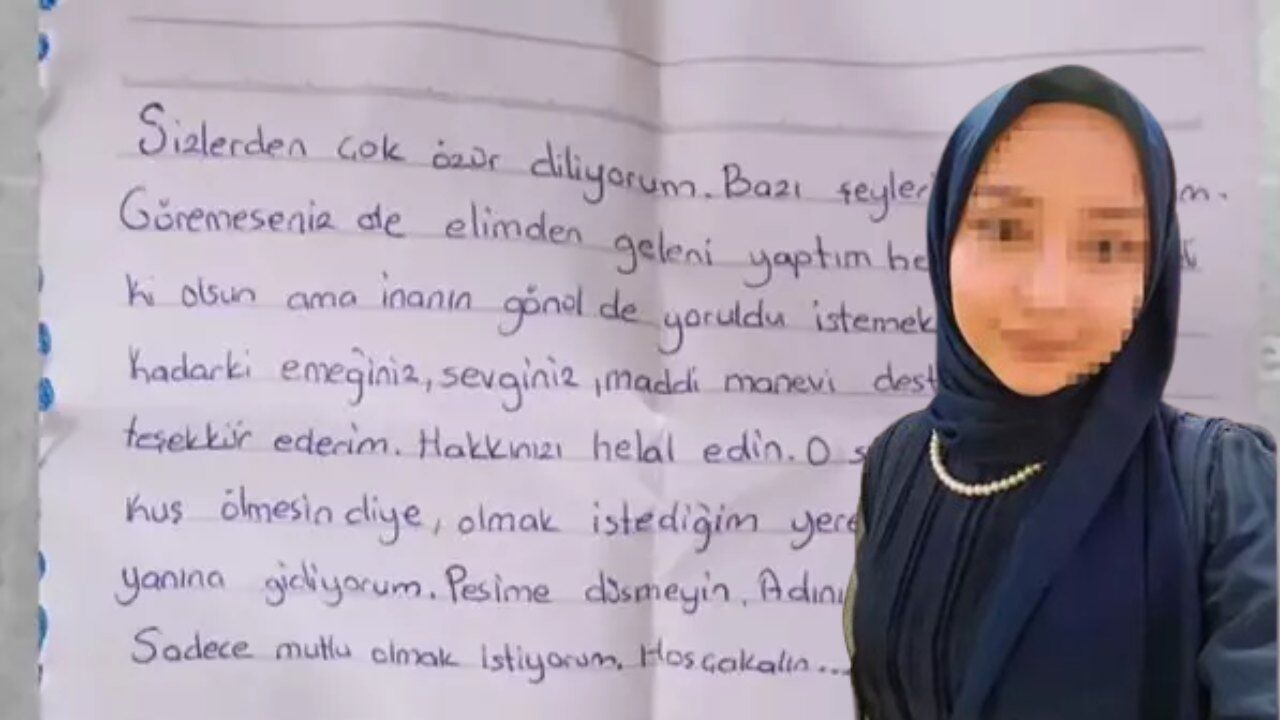 Sizlerden çok özür diliyorum. Bazı şeyleri
Göremeseniz de elimden geleni yaptım
ki olsun ama inanın gönül de yoruldu istemek
kadarki emeğiniz, sevginiz, maddi manevi
teşekkür ederim. Hakkınızı helal edin. O
kuş ölmesin diye, olmak istediğim
yanına gidiyorum. Peşime düşmeyin.
Sadece mutlu olmak istiyorum. Hoşçakalın...